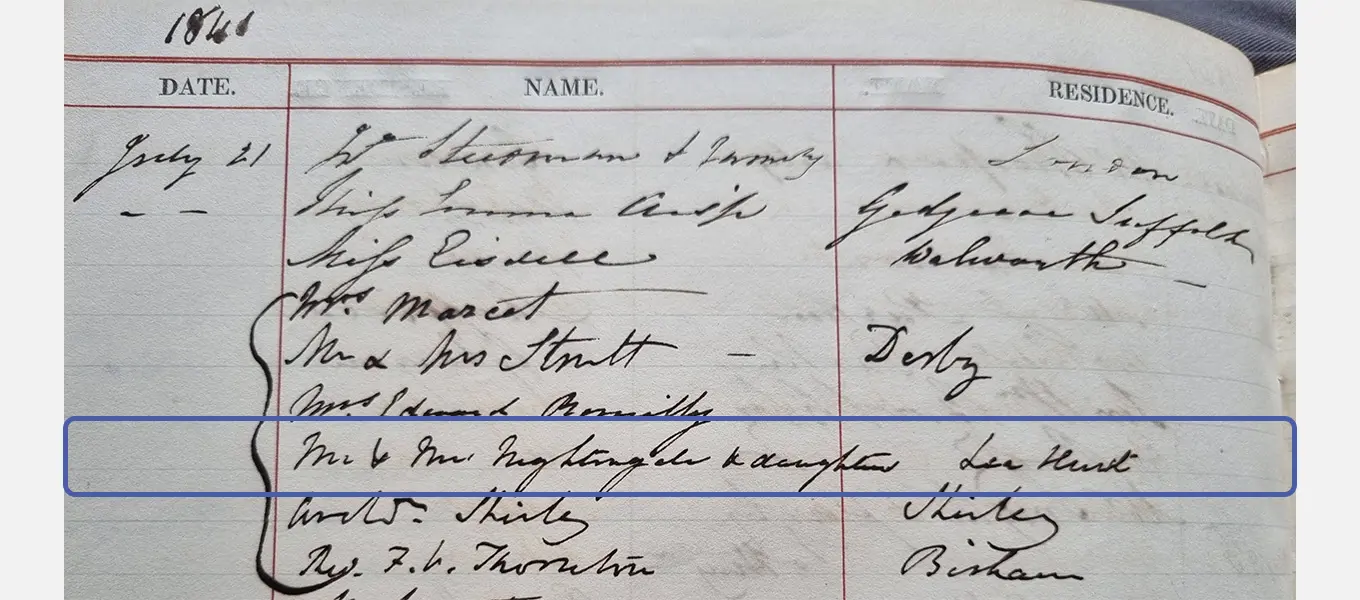 1841
DATE. NAME. RESIDENCE.
July 21 Wm Steedman & Family London
- - Miss Emma Crisp Gedgrave Suffolk
Miss Eisdell Walworth -
Mrs. Marcet
Mr & Mrs Strutt - Derby
Mrs Edward Romilly
Mr & Mrs Nightingale & daughters Lea Hurst
Archdn. Shirley Shirley
Rev. F. V. Thornton Bisham